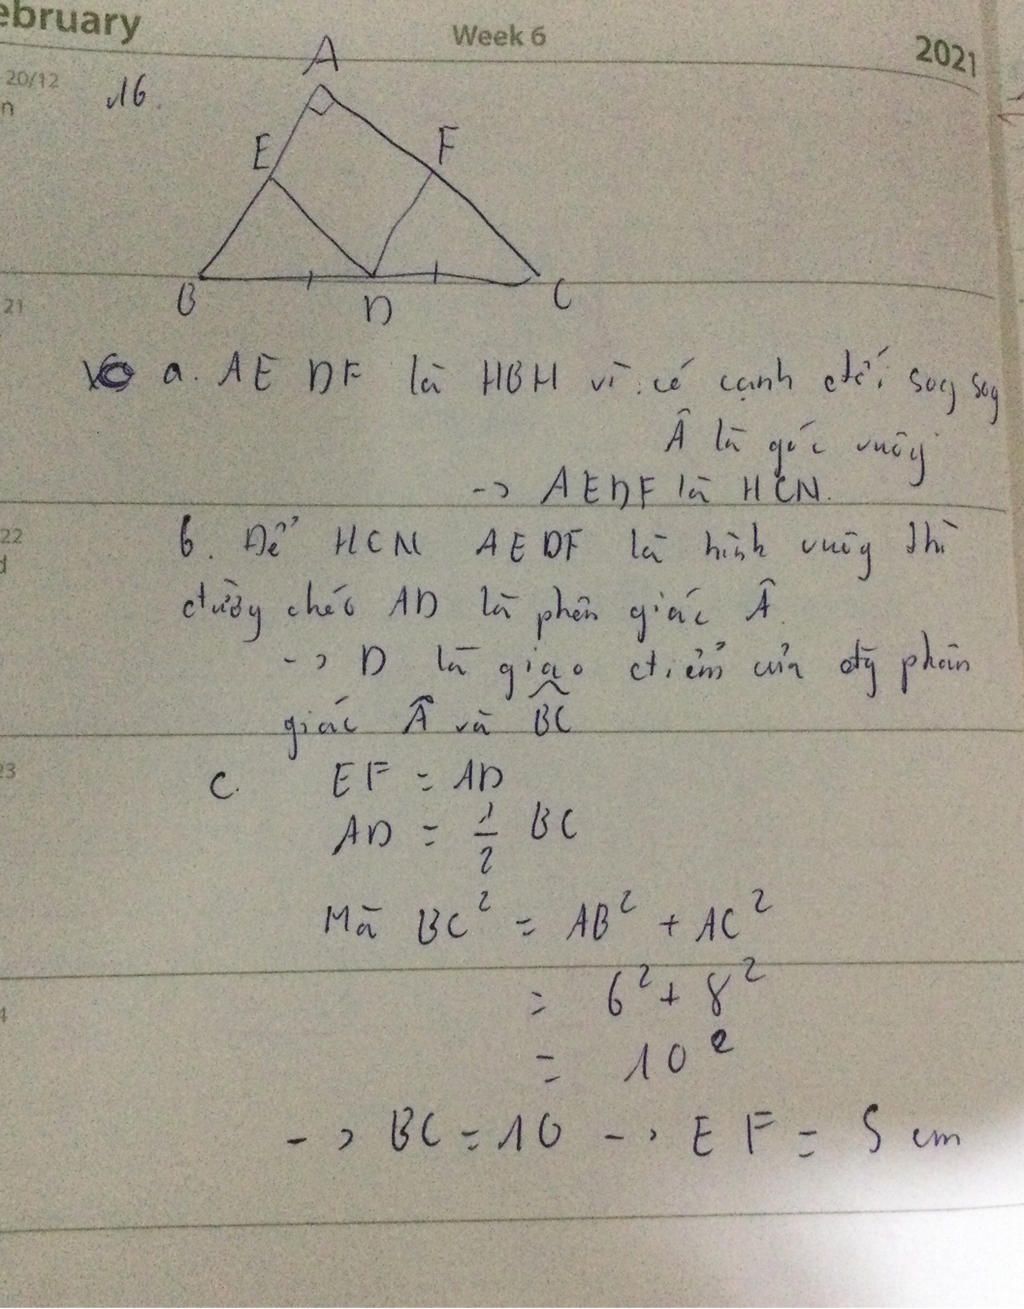 ebruary
Week 6
2021
20/12
n
16.
A
E
F
B
D
C
21
a. AEDF là HBH vì có cạnh đối sog sog
Â là góc vuôg
-> AEDF là HCN.
22
d
b. Để HCN AEDF là hình vuôg thì
đườg chéo AD là phân giác Â.
-> D là giao điểm của đg phân
giác Â và BC
23
c. EF = AD
AD = 1/2 BC
Mà BC² = AB² + AC²
= 6² + 8²
= 10²
4
-> BC = 10 -> EF = 5 cm